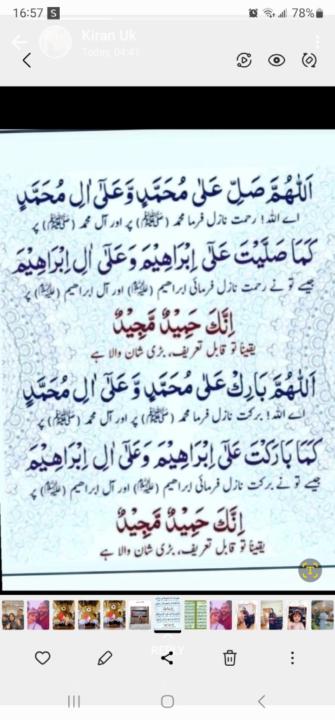 16:57 S 78%
Kiran Uk
Today, 04:41
اَللّٰهُمَّ صَلِّ عَلٰى مُحَمَّدٍ وَّعَلٰٓى اٰلِ مُحَمَّدٍ
اے اللہ! رحمت نازل فرما محمد (ﷺ) پر اور آل محمد (ﷺ) پر
كَمَا صَلَّيْتَ عَلٰٓى اِبْرَاهِيْمَ وَعَلٰٓى اٰلِ اِبْرَاهِيْمَ
جیسے تو نے رحمت نازل فرمائی ابراھیم (علیہ السلام) اور آل ابراھیم (علیہ السلام) پر
اِنَّكَ حَمِيْدٌ مَّجِيْدٌ
یقیناً تو قابل تعریف، بڑی شان والا ہے
اَللّٰهُمَّ بَارِكْ عَلٰى مُحَمَّدٍ وَّ عَلٰٓى اٰلِ مُحَمَّدٍ
اے اللہ! برکت نازل فرما محمد (ﷺ) پر اور آل محمد (ﷺ) پر
كَمَا بَارَكْتَ عَلٰٓى اِبْرَاهِيْمَ وَعَلٰٓى اٰلِ اِبْرَاهِيْمَ
جیسے تو نے برکت نازل فرمائی ابراھیم (علیہ السلام) اور آل ابراھیم (علیہ السلام) پر
اِنَّكَ حَمِيْدٌ مَّجِيْدٌ
یقیناً تو قابل تعریف، بڑی شان والا ہے
T
REPLY